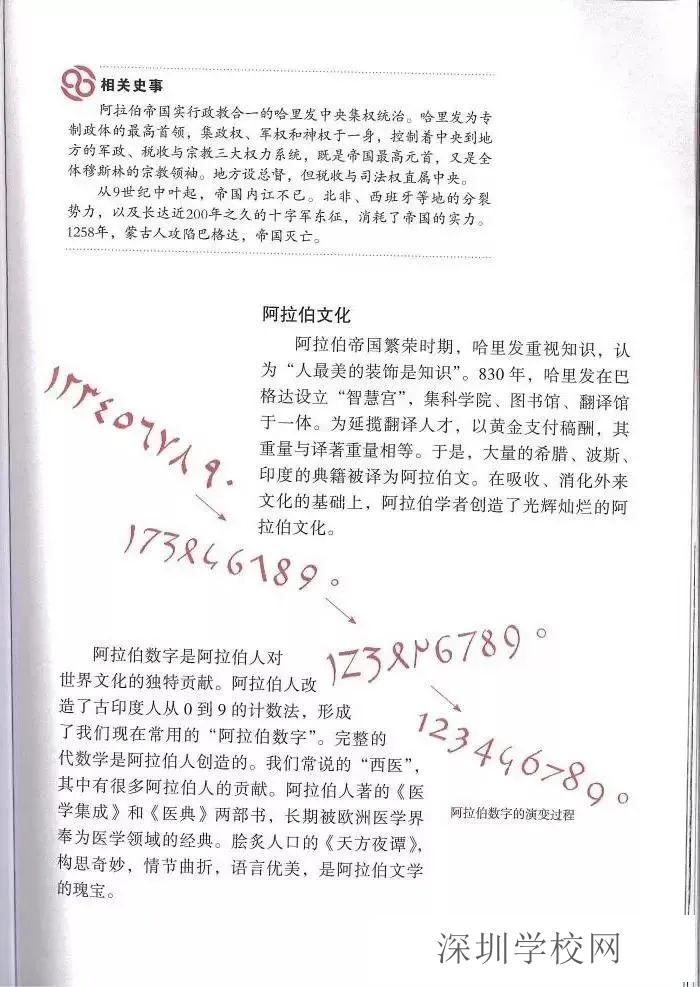 相关史事
阿拉伯帝国实行政教合一的哈里发中央集权统治。哈里发为专
制政体的最高首领，集政权、军权和神权于一身，控制着中央到地
方的军政、税收与宗教三大权力系统，既是帝国最高元首，又是全
体穆斯林的宗教领袖。地方设总督，但税收与司法权直属中央。
从9世纪中叶起，帝国内讧不已。北非、西班牙等地的分裂
势力，以及长达近200年之久的十字军东征，消耗了帝国的实力。
1258年，蒙古人攻陷巴格达，帝国灭亡。
阿拉伯文化
阿拉伯帝国繁荣时期，哈里发重视知识，认
为“人最美的装饰是知识”。830 年，哈里发在巴
格达设立“智慧宫”，集科学院、图书馆、翻译馆
于一体。为延揽翻译人才，以黄金支付稿酬，其
重量与译著重量相等。于是，大量的希腊、波斯、
印度的典籍被译为阿拉伯文。在吸收、消化外来
文化的基础上，阿拉伯学者创造了光辉灿烂的阿
拉伯文化。
阿拉伯数字是阿拉伯人对
世界文化的独特贡献。阿拉伯人改
造了古印度人从 0 到 9 的计数法，形成
了我们现在常用的“阿拉伯数字”。完整的
代数学是阿拉伯人创造的。我们常说的“西医”，
其中有很多阿拉伯人的贡献。阿拉伯人著的《医
学集成》和《医典》两部书，长期被欧洲医学界
奉为医学领域的经典。脍炙人口的《天方夜谭》，
构思奇妙，情节曲折，语言优美，是阿拉伯文学
的瑰宝。
阿拉伯数字的演变过程
深圳学校网